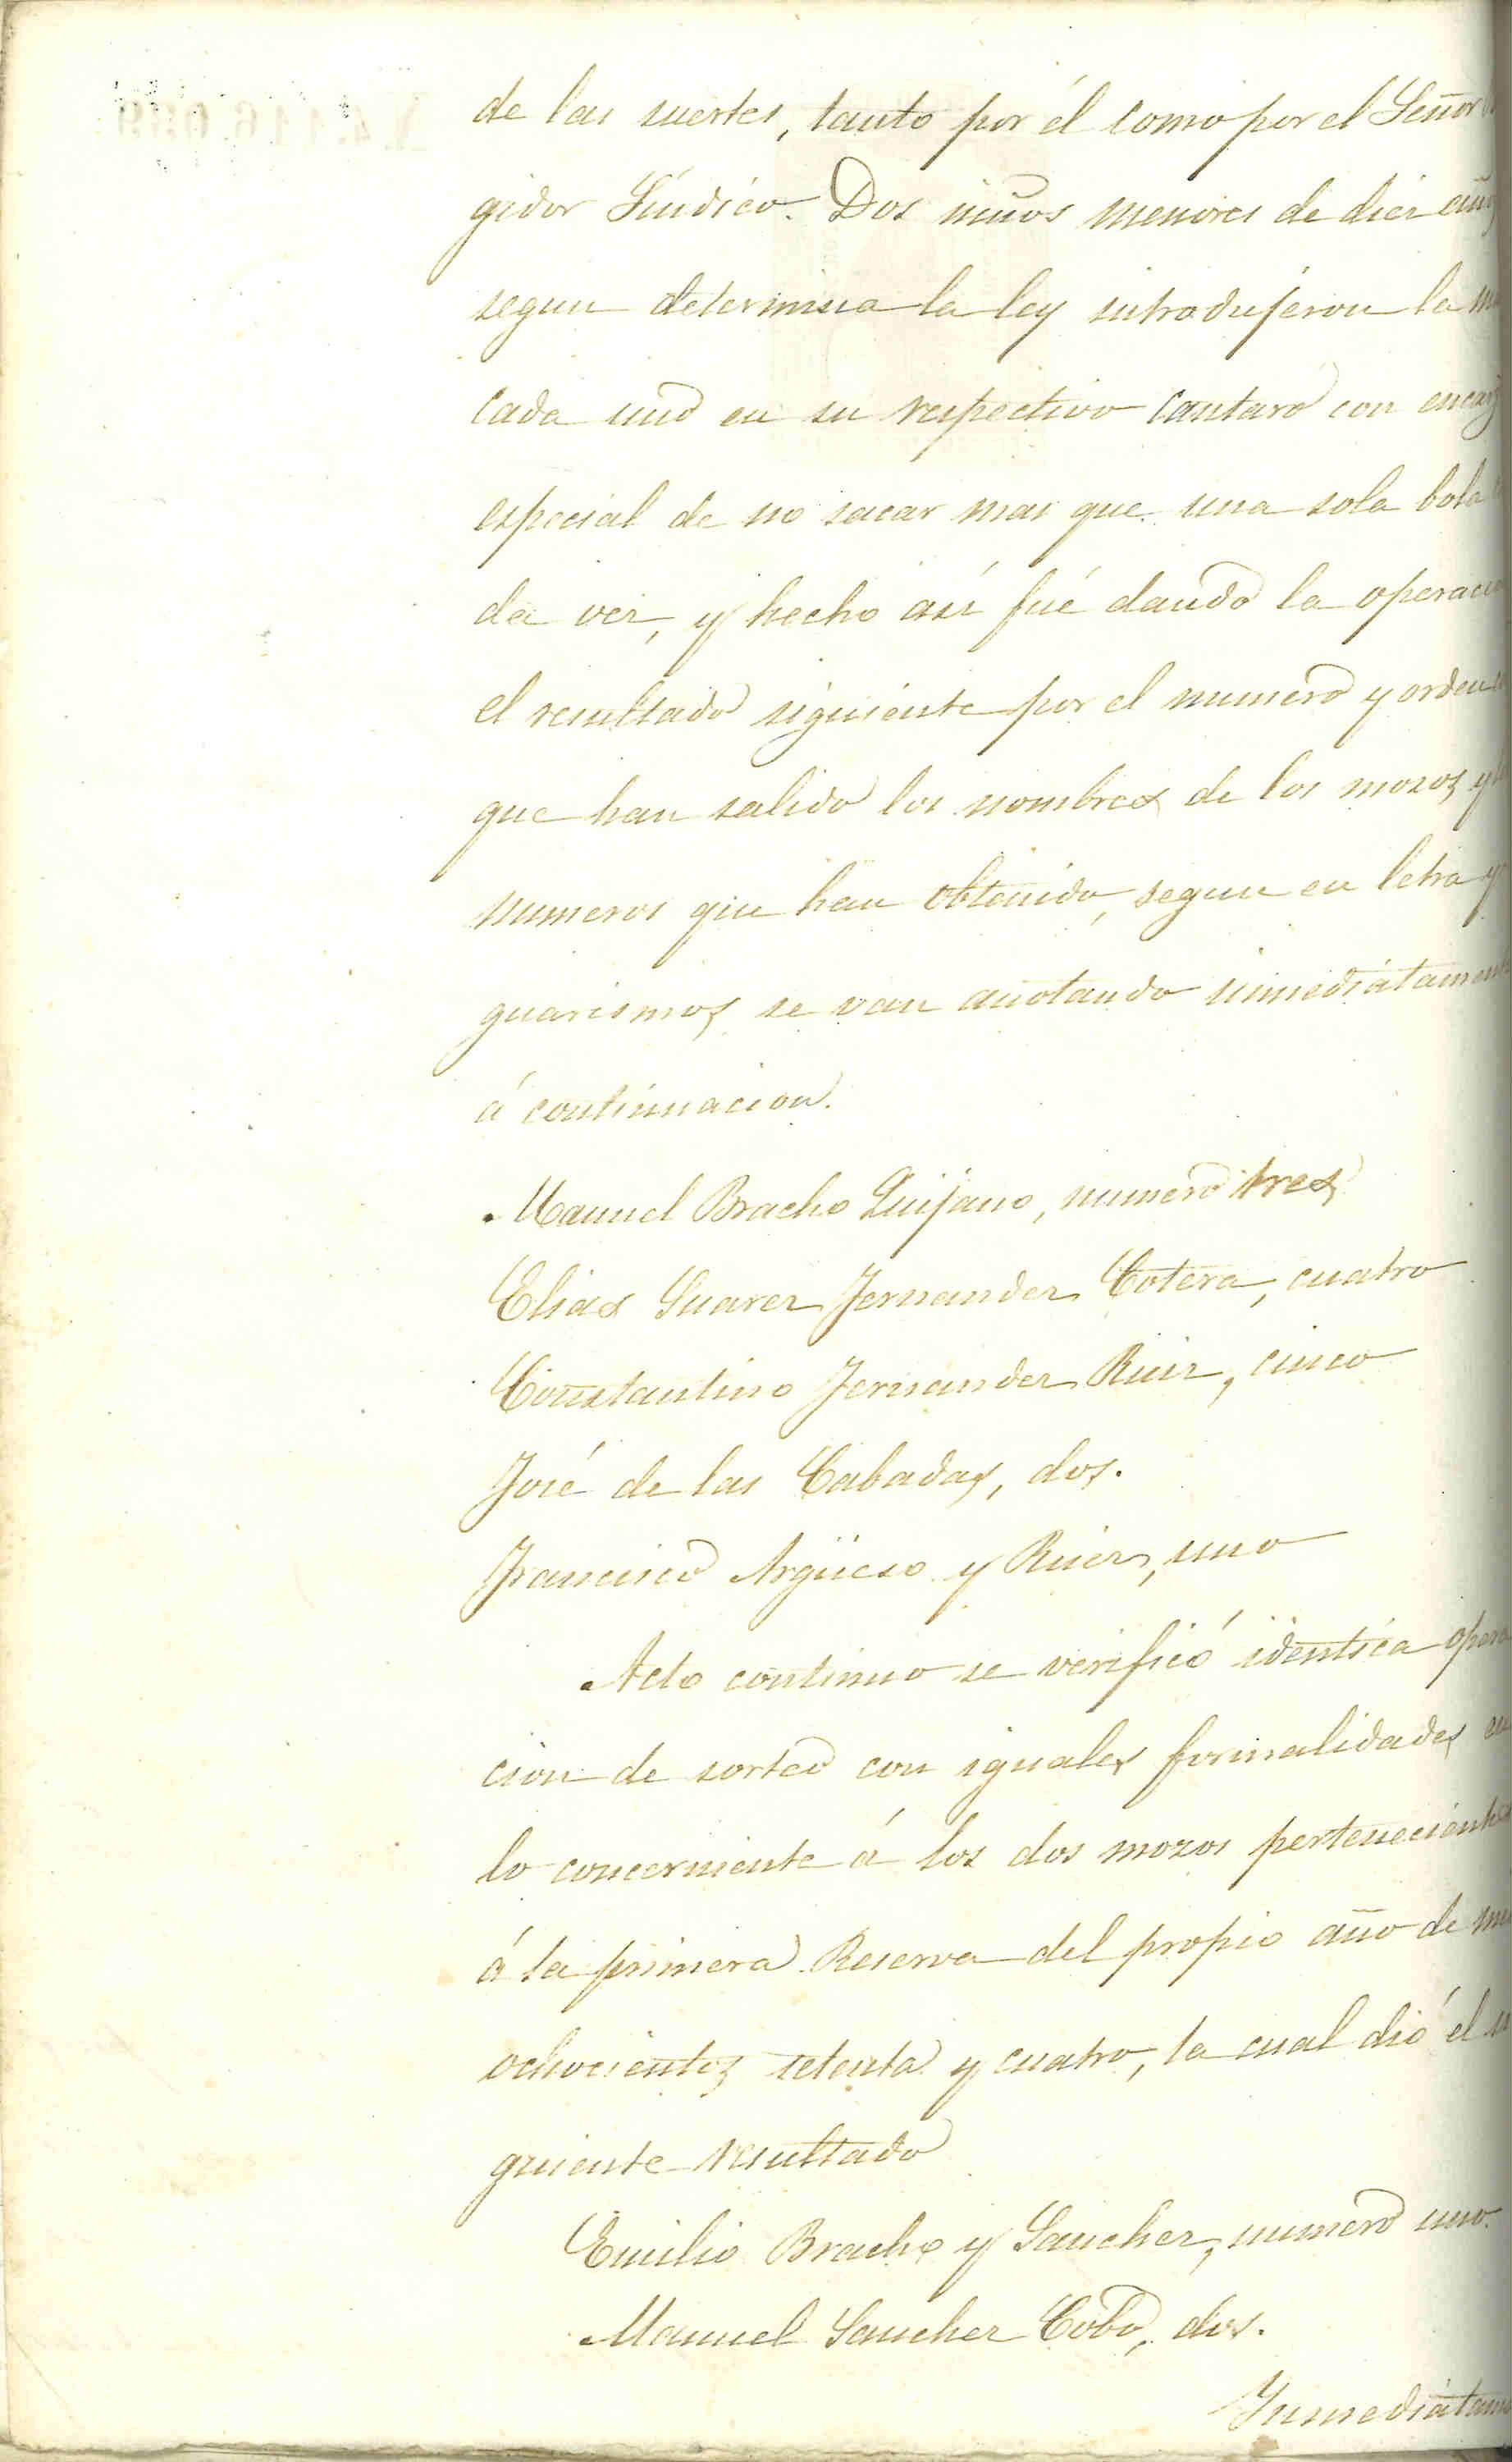 de las suertes, tanto por él como por el Señor
gidor Síndico. Dos niños menores de diez años
segun determina la ley introdujeron la
cada uno en su respectivo cantaro con encarg
especial de no sacar mas que una sola bola
da vez, y hecho así fué dando la operacio
el resultado siguiente por el numero y orden
que han salido los nombres de los mozos y
numeros que han obtenido, segun en letra y
guarismos se van anotando inmediatament
á continuacion.
Manuel Bracho Quijano, numero tres
Elias Suarez Fernandez Cotera, cuatro
Constantino Fernandez Ruiz, cinco
José de las Cabadas, dos.
Francisco Argüeso y Ruiz, uno
Acto continuo se verificó identica opera
cion de sorteo con iguales formalidades en
lo concerniente á los dos mozos pertenecientes
á la primera Reserva del propio año de mil
ochocientos setenta y cuatro, la cual dió el si
guiente resultado
Emilio Bracho y Sanchez, numero uno.
Manuel Sanchez Cobo, dos.
Inmediatame